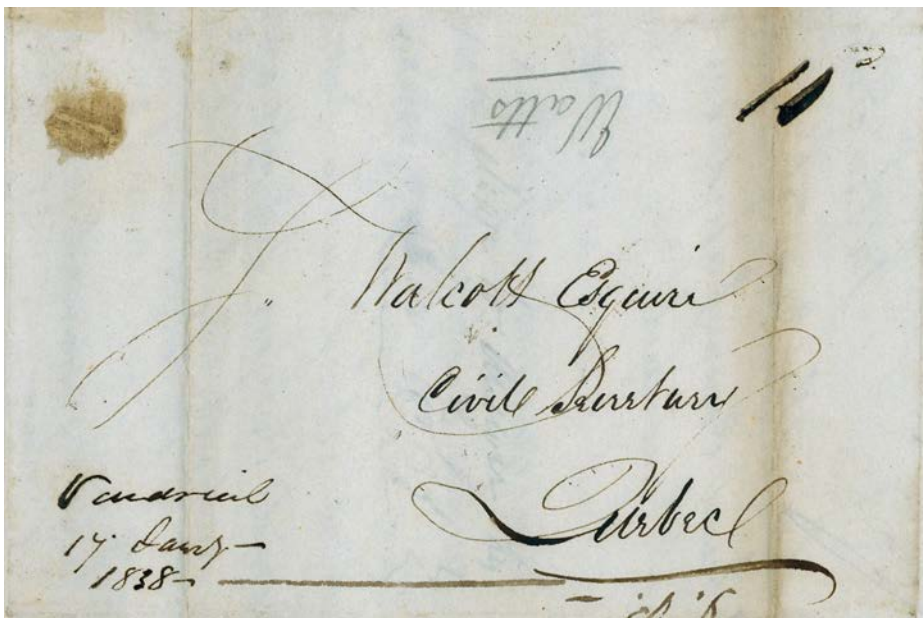 Watts
11
J. Walcott Esquire
Civil Secretary
Quebec
Vaudreuil
17 Jany
1838